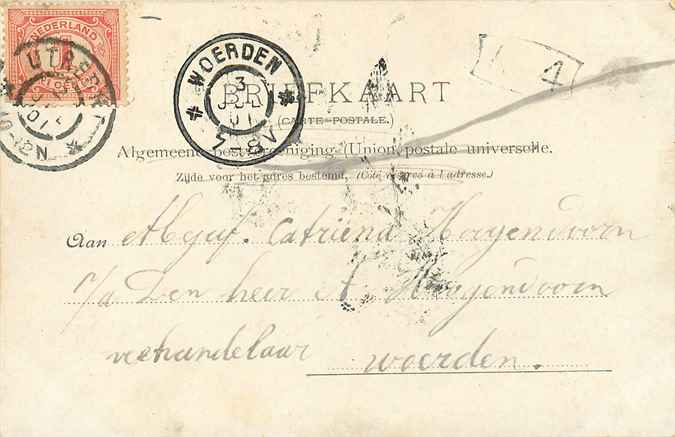 NEDERLAND
UTRECHT
WOERDEN
3
01
7-8V
4
BRIEFKAART
(CARTE-POSTALE.)
Algemeene postvereeniging (Union postale universelle.
Zijde voor het adres bestemd, (Côté réservé à l'adresse.)
Aan Mejuf. Catriena Hoogendoorn
p/a Den heer A. Hoogendoorn
veehandelaar woerden.